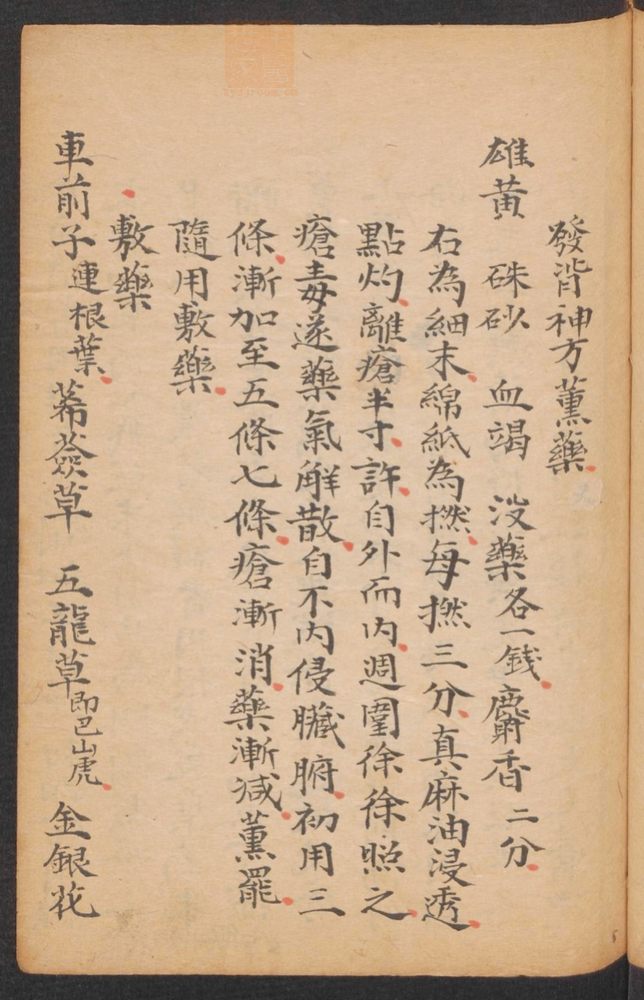 發背神方薰藥
雄黃 硃砂 血竭 沒藥各一錢麝香二分
右為細末綿紙為撚每撚三分真麻油浸透
點灼離瘡半寸許自外而內週圍徐徐照之
瘡毒遂藥氣解散自不內侵臟腑初用三
條漸加至五條七條瘡漸消藥漸減薰罷
隨用敷藥
敷藥
車前子連根葉豨薟草 五龍草即巴山虎 金銀花